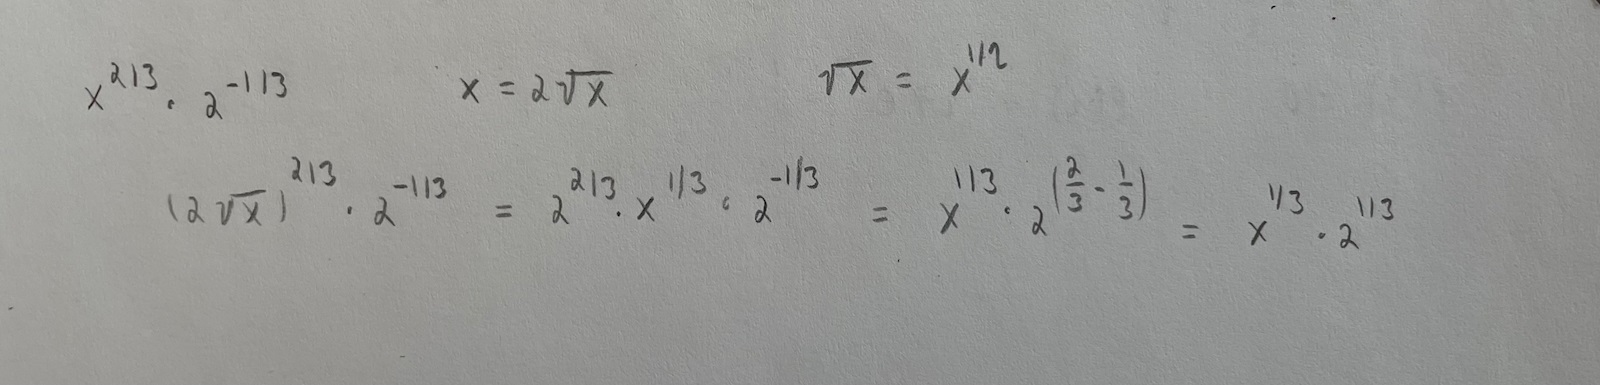 x^{2/3} · 2^{-1/3}    x = 2√x    √x = x^{1/2}
(2√x)^{2/3} · 2^{-1/3} = 2^{2/3} · x^{1/3} · 2^{-1/3} = x^{1/3} · 2^{(\frac{2}{3} - \frac{1}{3})} = x^{1/3} · 2^{1/3}